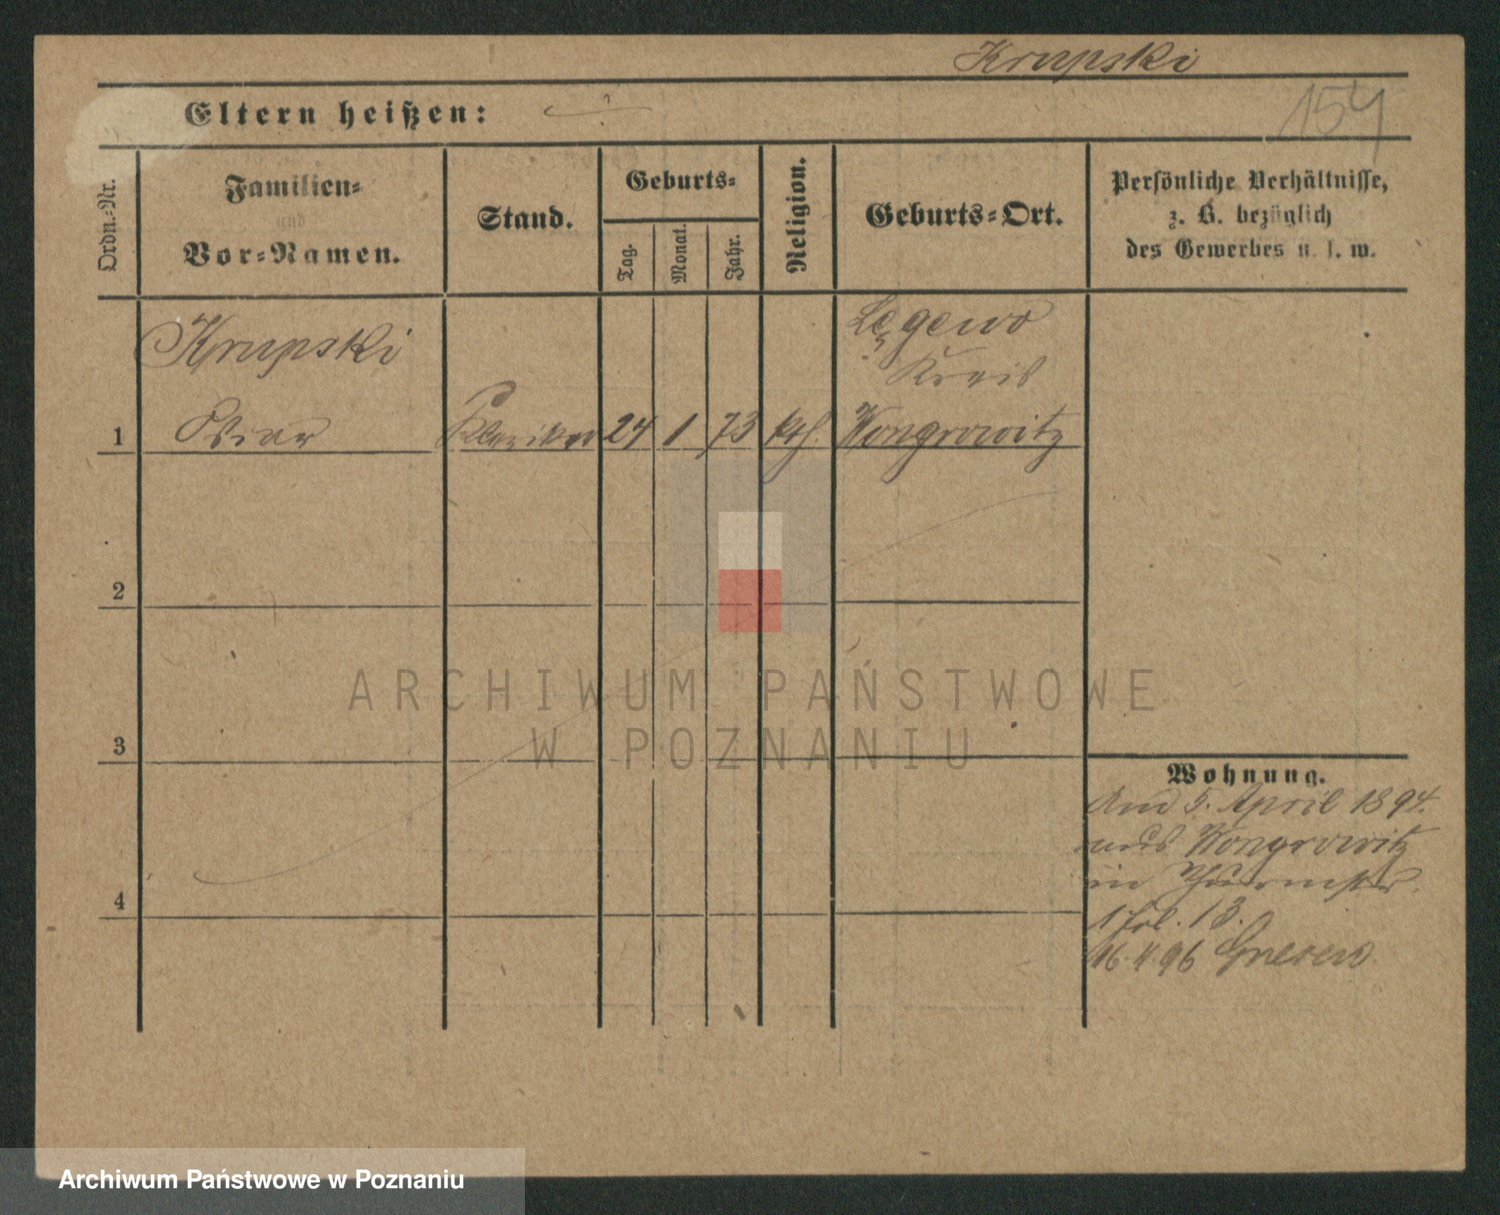 Krupski
154
Eltern heißen:
Ordn.-Nr.
Familien-
und
Vor-Namen.
Stand.
Geburts-
Tag.
Monat.
Jahr.
Religion.
Geburts-Ort.
Persönliche Verhältnisse,
z. B. bezüglich
des Gewerbes u. s. w.
Krupski
Łęgowo
Kreis
1 Kleriker 24 1 73 kth. Wongrowitz
2
3
4
ARCHIWUM PAŃSTWOWE
W POZNANIU
Wohnung.
Am 5. April 1894.
aus Wongrowitz
in
13.
16.4.96 Gnesen
Archiwum Państwowe w Poznaniu